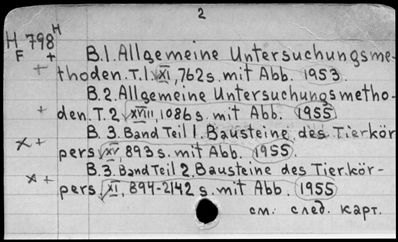 2
H 798 H
F +
B.1. Allgemeine Untersuchungsme-
+ thoden. T.1 XI, 762 s. mit Abb. 1953.
B.2. Allgemeine Untersuchungsmetho-
+ den. T.2 XVIII, 1086 s. mit Abb. 1955
B. 3. Band Teil 1. Bausteine des Tierkör
x + pers XV, 893 s. mit Abb. 1955.
B.3. Band Teil 2. Bausteine des Tier.kör-
x + pers XI, 894-2142 s. mit Abb. 1955
см. след. карт.